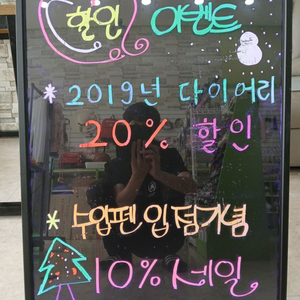 할인 이벤트
* 2019년 다이어리
20% 할인
* 수입펜 입점기념
10% 세일